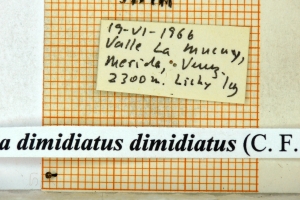 19-VI-1966
Valle La Mucuy,
Merida, Venz
2300m. Lichy
a dimidiatus dimidiatus (C. F.